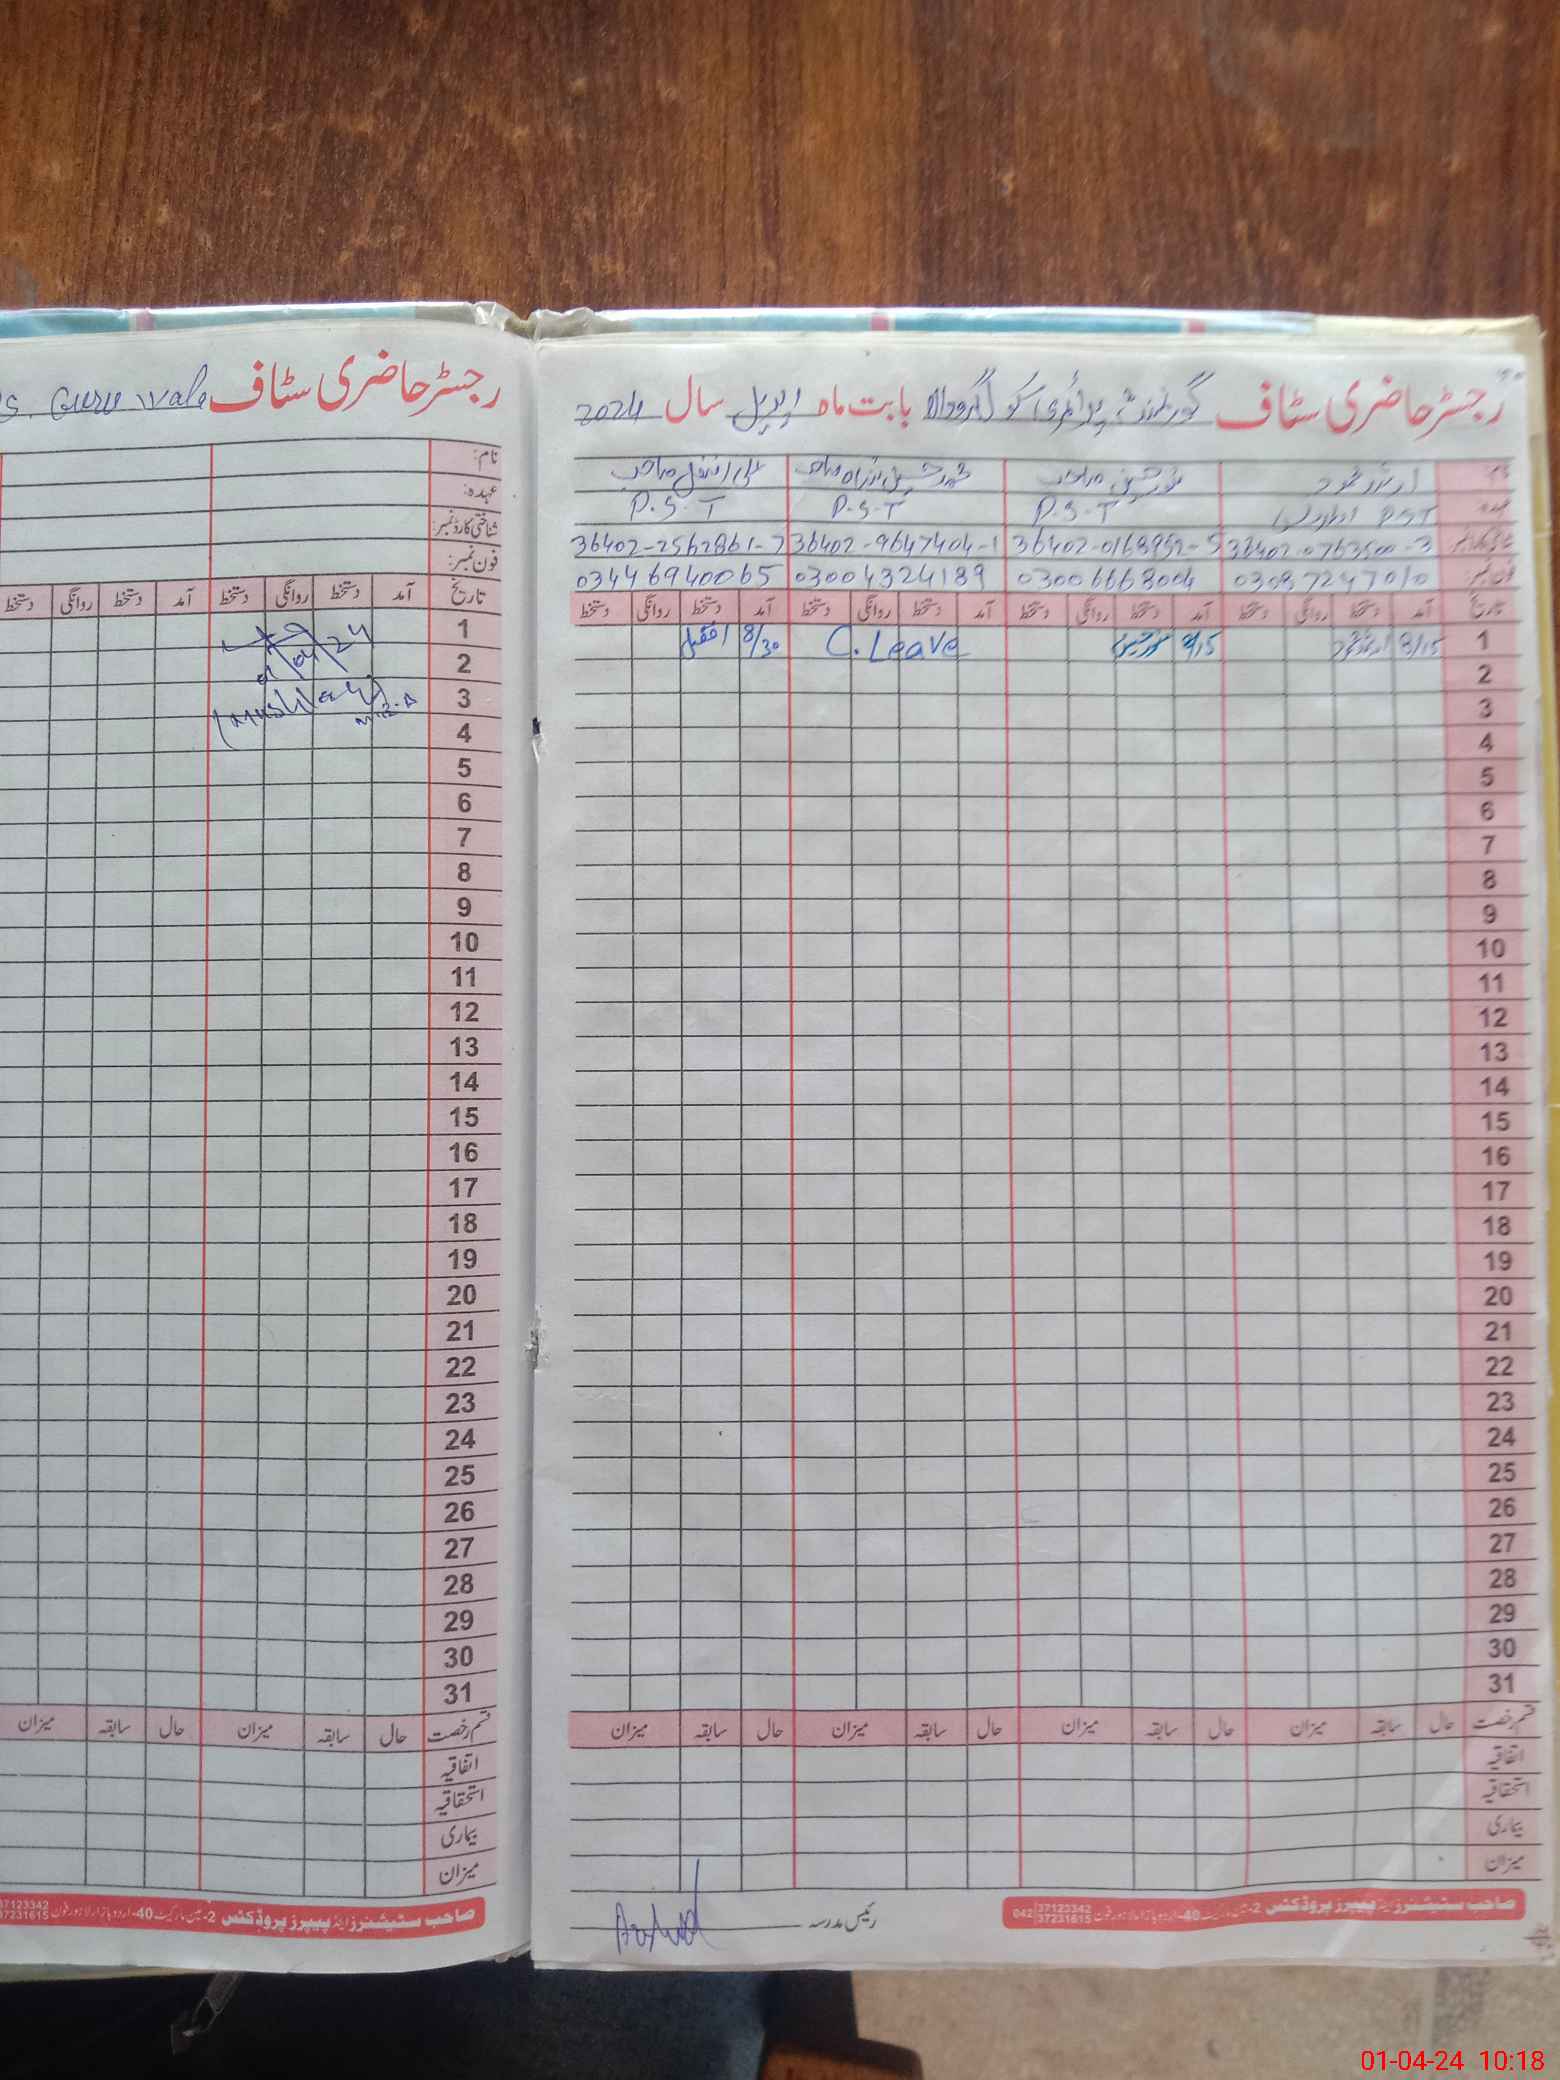 رجسٹر حاضری سٹاف گورنمنٹ پرائمری سکول گرووالا بابت ماہ اپریل سال 2024
نام: ارشد محمود
عہدہ: PST P.S.T P.S.T P.S.T
شناختی کارڈ نمبر: 36402-0763500-3 36402-0168952-5 36402-9647404-1 36402-2562861-7
فون نمبر: 03087247010 03006668004 03004324189 03446940065
تاریخ آمد دستخط روانگی دستخط آمد دستخط روانگی دستخط آمد دستخط روانگی دستخط آمد دستخط روانگی دستخط
1 8/15 ارشد محمود 8/15 C. Leave 8/30
2
3
4
5
6
7
8
9
10
11
12
13
14
15
16
17
18
19
20
21
22
23
24
25
26
27
28
29
30
31
قسم رخصت حال سابقہ میزان حال سابقہ میزان حال سابقہ میزان حال سابقہ میزان
اتفاقیہ
استحقاقیہ
بیماری
میزان
صاحب سٹیشنرز اینڈ پیپرز پروڈکٹس 2-مین مارکیٹ 40-اردو بازار لاہور فون 042 37123342 37231615
رئیس مدرسہ
رجسٹر حاضری سٹاف S. Guru Wala
نام:
عہدہ:
شناختی کارڈ نمبر:
فون نمبر:
تاریخ آمد دستخط روانگی دستخط آمد دستخط روانگی دستخط
1
2
3
4
5
6
7
8
9
10
11
12
13
14
15
16
17
18
19
20
21
22
23
24
25
26
27
28
29
30
31
قسم رخصت حال سابقہ میزان حال سابقہ میزان
اتفاقیہ
استحقاقیہ
بیماری
میزان
صاحب سٹیشنرز اینڈ پیپرز پروڈکٹس 2-مین مارکیٹ 40-اردو بازار لاہور فون 37123342 37231615
01-04-24 10:18